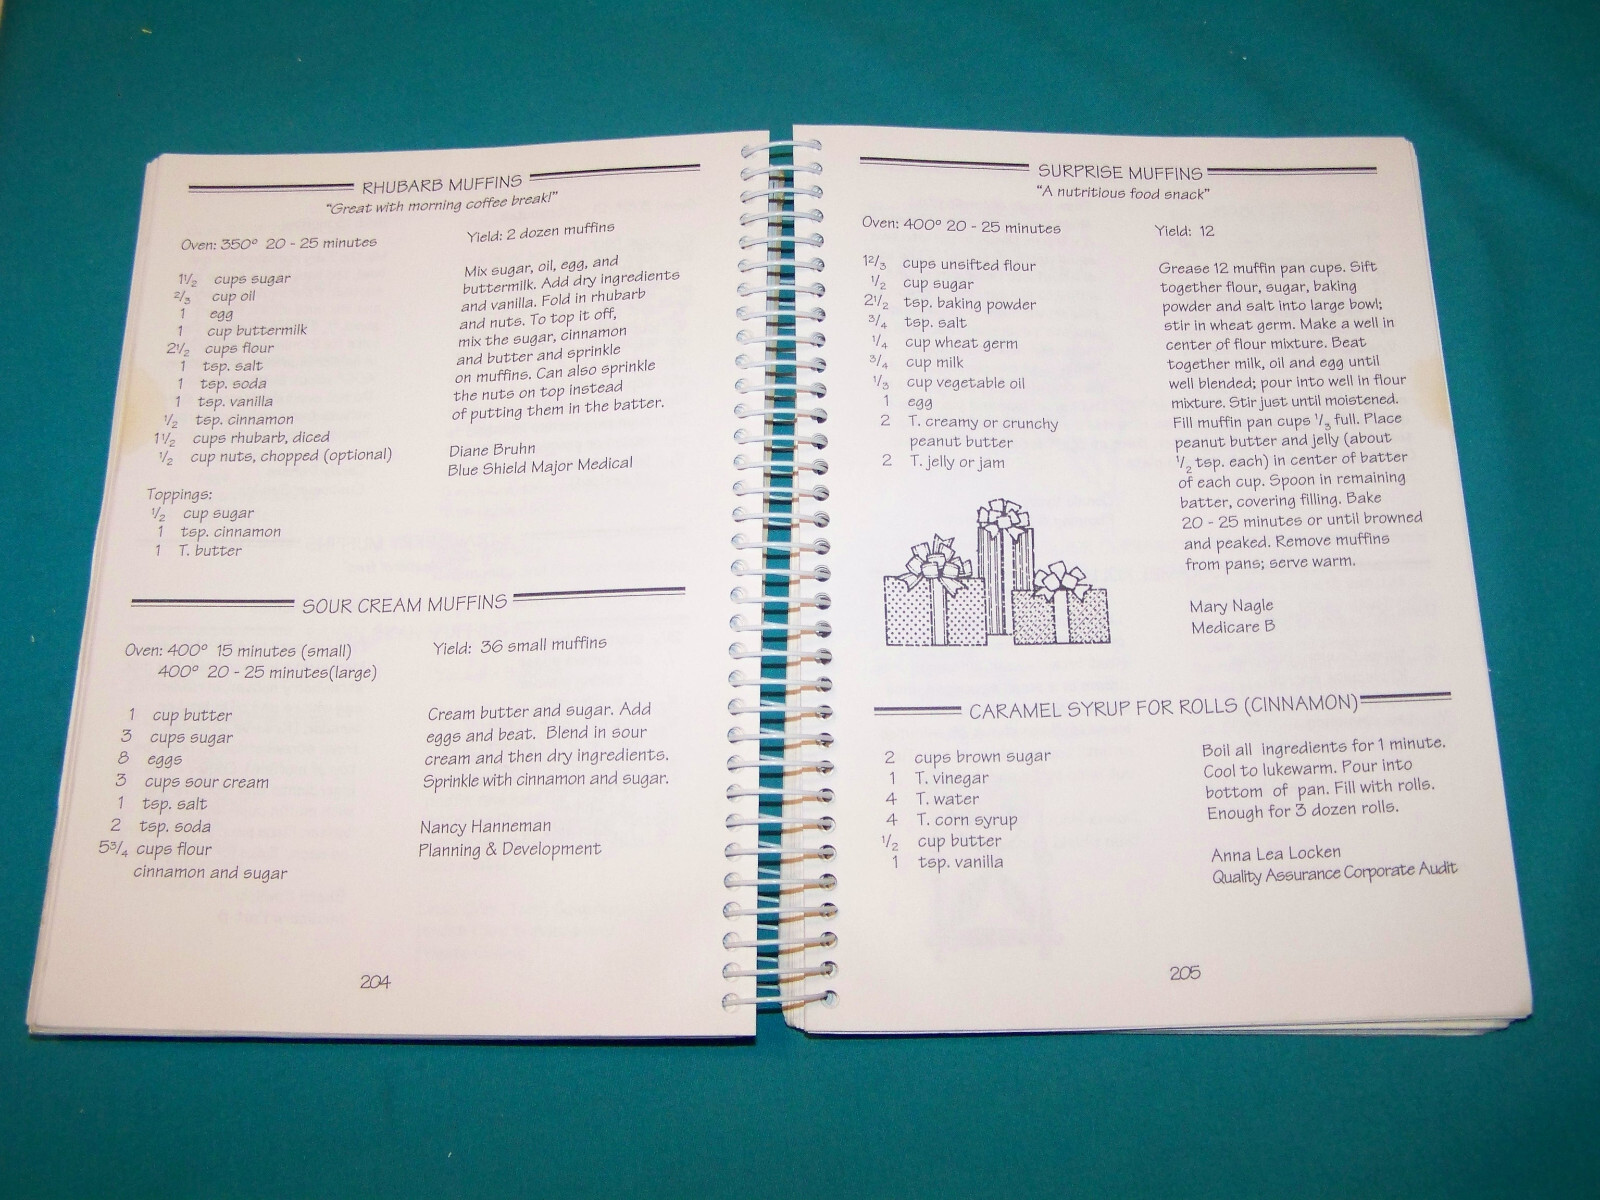 RHUBARB MUFFINS
"Great with morning coffee break!"
Oven: 350° 20 - 25 minutes
Yield: 2 dozen muffins
1 1/2 cups sugar
2/3 cup oil
1 egg
1 cup buttermilk
2 1/2 cups flour
1 tsp. salt
1 tsp. soda
1 tsp. vanilla
1/2 tsp. cinnamon
1 1/2 cups rhubarb, diced
1/2 cup nuts, chopped (optional)
Toppings:
1/2 cup sugar
1 tsp. cinnamon
1 T. butter
Mix sugar, oil, egg, and
buttermilk. Add dry ingredients
and vanilla. Fold in rhubarb
and nuts. To top it off,
mix the sugar, cinnamon
and butter and sprinkle
on muffins. Can also sprinkle
the nuts on top instead
of putting them in the batter.
Diane Bruhn
Blue Shield Major Medical
SOUR CREAM MUFFINS
Oven: 400° 15 minutes (small)
400° 20 - 25 minutes(large)
Yield: 36 small muffins
1 cup butter
3 cups sugar
8 eggs
3 cups sour cream
1 tsp. salt
2 tsp. soda
5 3/4 cups flour
cinnamon and sugar
Cream butter and sugar. Add
eggs and beat. Blend in sour
cream and then dry ingredients.
Sprinkle with cinnamon and sugar.
Nancy Hanneman
Planning & Development
204
SURPRISE MUFFINS
"A nutritious food snack"
Oven: 400° 20 - 25 minutes
Yield: 12
1 2/3 cups unsifted flour
1/2 cup sugar
2 1/2 tsp. baking powder
3/4 tsp. salt
1/4 cup wheat germ
3/4 cup milk
1/3 cup vegetable oil
1 egg
2 T. creamy or crunchy
peanut butter
2 T. jelly or jam
Grease 12 muffin pan cups. Sift
together flour, sugar, baking
powder and salt into large bowl;
stir in wheat germ. Make a well in
center of flour mixture. Beat
together milk, oil and egg until
well blended; pour into well in flour
mixture. Stir just until moistened.
Fill muffin pan cups 1/3 full. Place
peanut butter and jelly (about
1/2 tsp. each) in center of batter
of each cup. Spoon in remaining
batter, covering filling. Bake
20 - 25 minutes or until browned
and peaked. Remove muffins
from pans; serve warm.
Mary Nagle
Medicare B
CARAMEL SYRUP FOR ROLLS (CINNAMON)
2 cups brown sugar
1 T. vinegar
4 T. water
4 T. corn syrup
1/2 cup butter
1 tsp. vanilla
Boil all ingredients for 1 minute.
Cool to lukewarm. Pour into
bottom of pan. Fill with rolls.
Enough for 3 dozen rolls.
Anna Lea Locken
Quality Assurance Corporate Audit
205